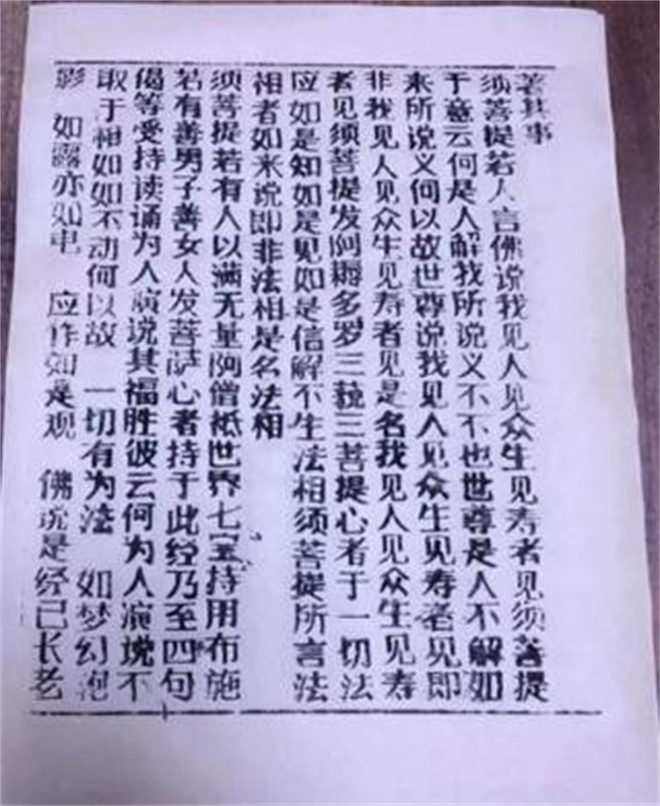 著其事
须菩提若人言佛说我见人见众生见寿者见须菩提
于意云何是人解我所说义不不也世尊是人不解如
来所说义何以故世尊说我见人见众生见寿者见即
非我见人见众生见寿者见是名我见人见众生见寿
者见须菩提发阿耨多罗三藐三菩提心者于一切法
应如是知如是见如是信解不生法相须菩提所言法
相者如来说即非法相是名法相
须菩提若有人以满无量阿僧祇世界七宝持用布施
若有善男子善女人发菩萨心者持于此经乃至四句
偈等受持读诵为人演说其福胜彼云何为人演说不
取于相如如不动何以故 一切有为法 如梦幻泡
影 如露亦如电 应作如是观 佛说是经已长老